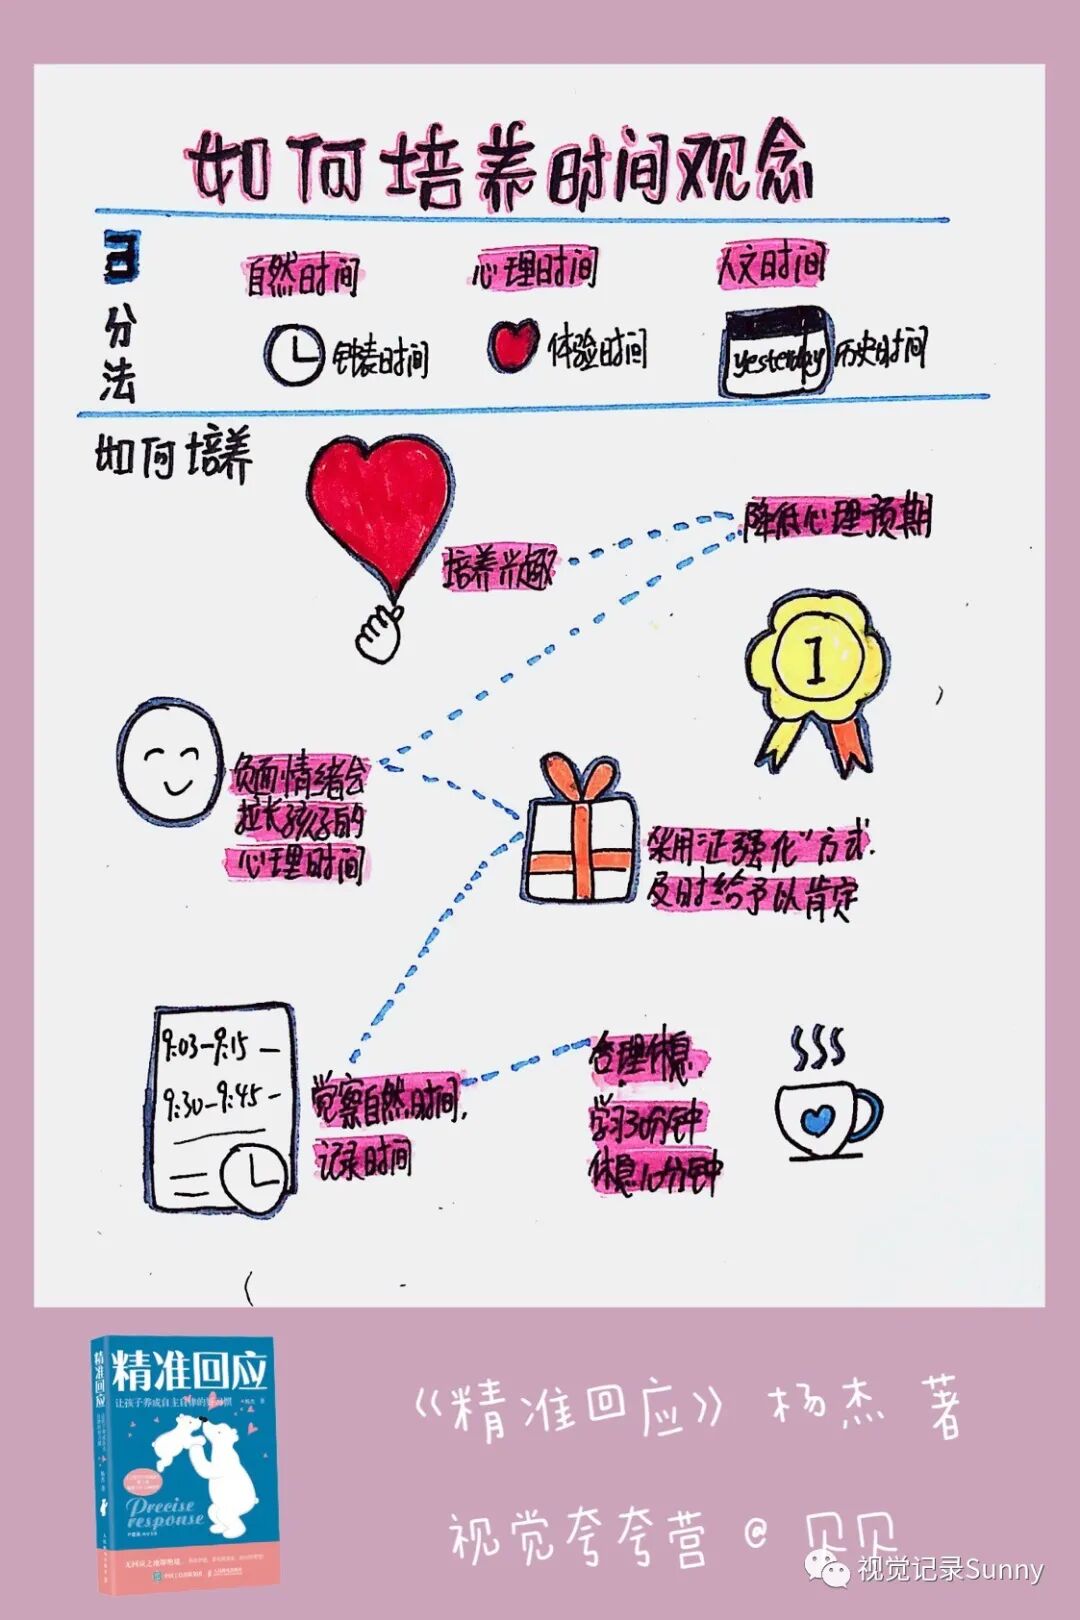 如何培养时间观念
3
分
法
自然时间
心理时间
人文时间
钟表时间
体验时间
yesterday
历史时间
如何培养
培养兴趣
降低心理预期
1
负面情绪会
拉长孩子的
心理时间
采用“正强化”方式.
及时给予以肯定
9:03-9:15 -
9:30-9:45 -
觉察自然时间,
记录时间
合理休息,
学习30分钟
休息10分钟
精准回应
精准回应
让孩子养成自主自律的好习惯
杨杰 著
Precise
response
《精准回应》 杨杰 著
视觉夸夸营 @ 贝贝
视觉记录Sunny